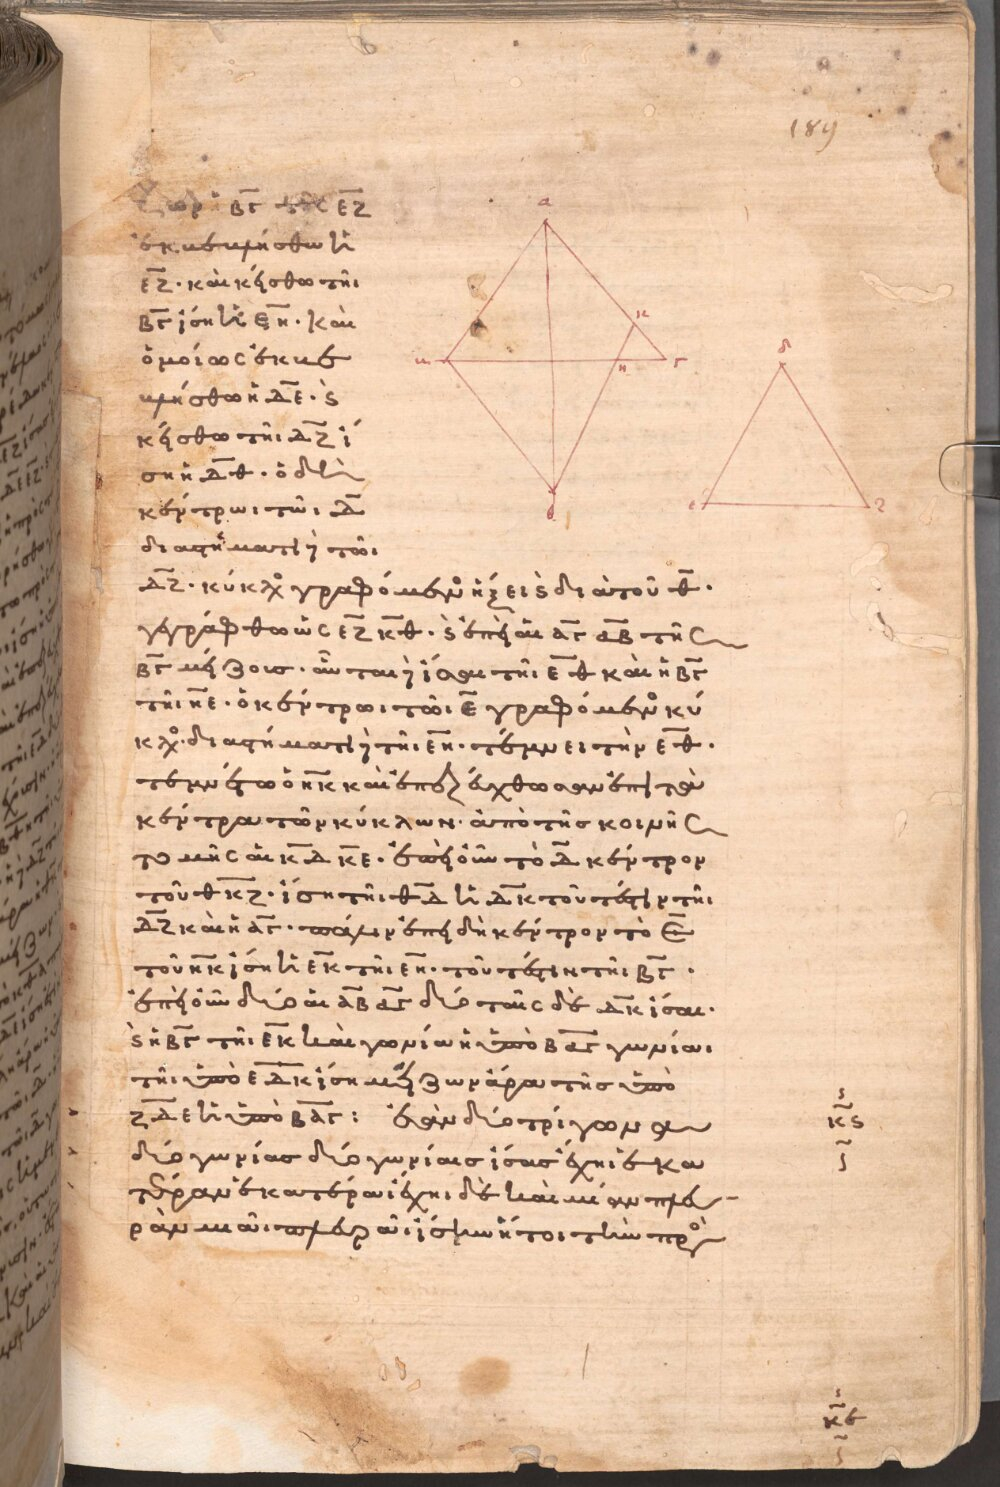 189
ΒΓ τῆς ΕΖ
ἐκβεβλήσθω ἡ
ΕΖ· καὶ κείσθω τῆι
ΒΓ ἴση ἡ ΕΗ· καὶ
ὁμοίως ἐκβε
βλήσθω ἡ ΔΕ· καὶ
κείσθω τῆι ΔΖ ἴ
ση ἡ ΔΘ· ὁ δὴ
κέντρωι τῶι Δ
διαστήματι τῶι
ΔΖ· κύκλος γραφόμενος ἥξει καὶ διὰ τοῦ Θ·
γεγράφθω ὡς ΕΖ ΚΘ· καὶ ἐπεὶ αἱ ΑΓ ΑΒ τῆς
ΒΓ μείζοις· αὗται ἴσαι τῆι ΕΘ καὶ ἡ ΒΓ
τῆι ΗΕ· ὁ κέντρωι τῶι Ε γραφόμενος κύ
κλος· διαστήματι τῆι ΕΗ· τέμνει τὴν ΕΘ·
τεμνέτω ὡς ὁ ΗΚ καὶ ἐπεζεύχθωσαν ἐπὶ τὰ
κέντρα τῶν κύκλων· ἀπὸ τῆς κοινῆς
τομῆς αἱ ΚΔ ΚΕ· ἐπεὶ οὖν τὸ Δ κέντρον
τοῦ ΘΚΖ· ἴση τῆι ΘΔ ἡ ΔΚ τουτέστιν τῆι
ΔΖ καὶ ἡ ΑΓ· πάλιν ἐπεὶ δὴ κέντρον τὸ Ε
τοῦ ΗΚ ἴση ἡ ΕΚ τῆι ΕΗ· τουτέστιν τῆι ΒΓ·
ἐπεὶ οὖν δύο αἱ ΑΒ ΑΓ δύο ταῖς ΔΕ ΔΚ ἴσαι·
καὶ ἡ ΒΓ τῆι ΕΚ καὶ γωνία ἡ ὑπὸ ΒΑΓ γωνίαι
τῆι ὑπὸ ΕΔΚ ἴση μείζων ἄρα τῆς ὑπὸ
ΖΔΕ ἡ ὑπὸ ΒΑΓ: ἐὰν δύο τρίγωνα
δύο γωνίας δύο γωνίαις ἴσας ἔχηι ἑκα
τέραν ἑκατέραι ἔχηι δὲ καὶ μίαν πλευ
ρὰν μιᾶι πλευρᾶι ἴσην ἤτοι τὴν πρὸς
α
κ
β
η
γ
θ
δ
ε
ζ
κς
κϛ